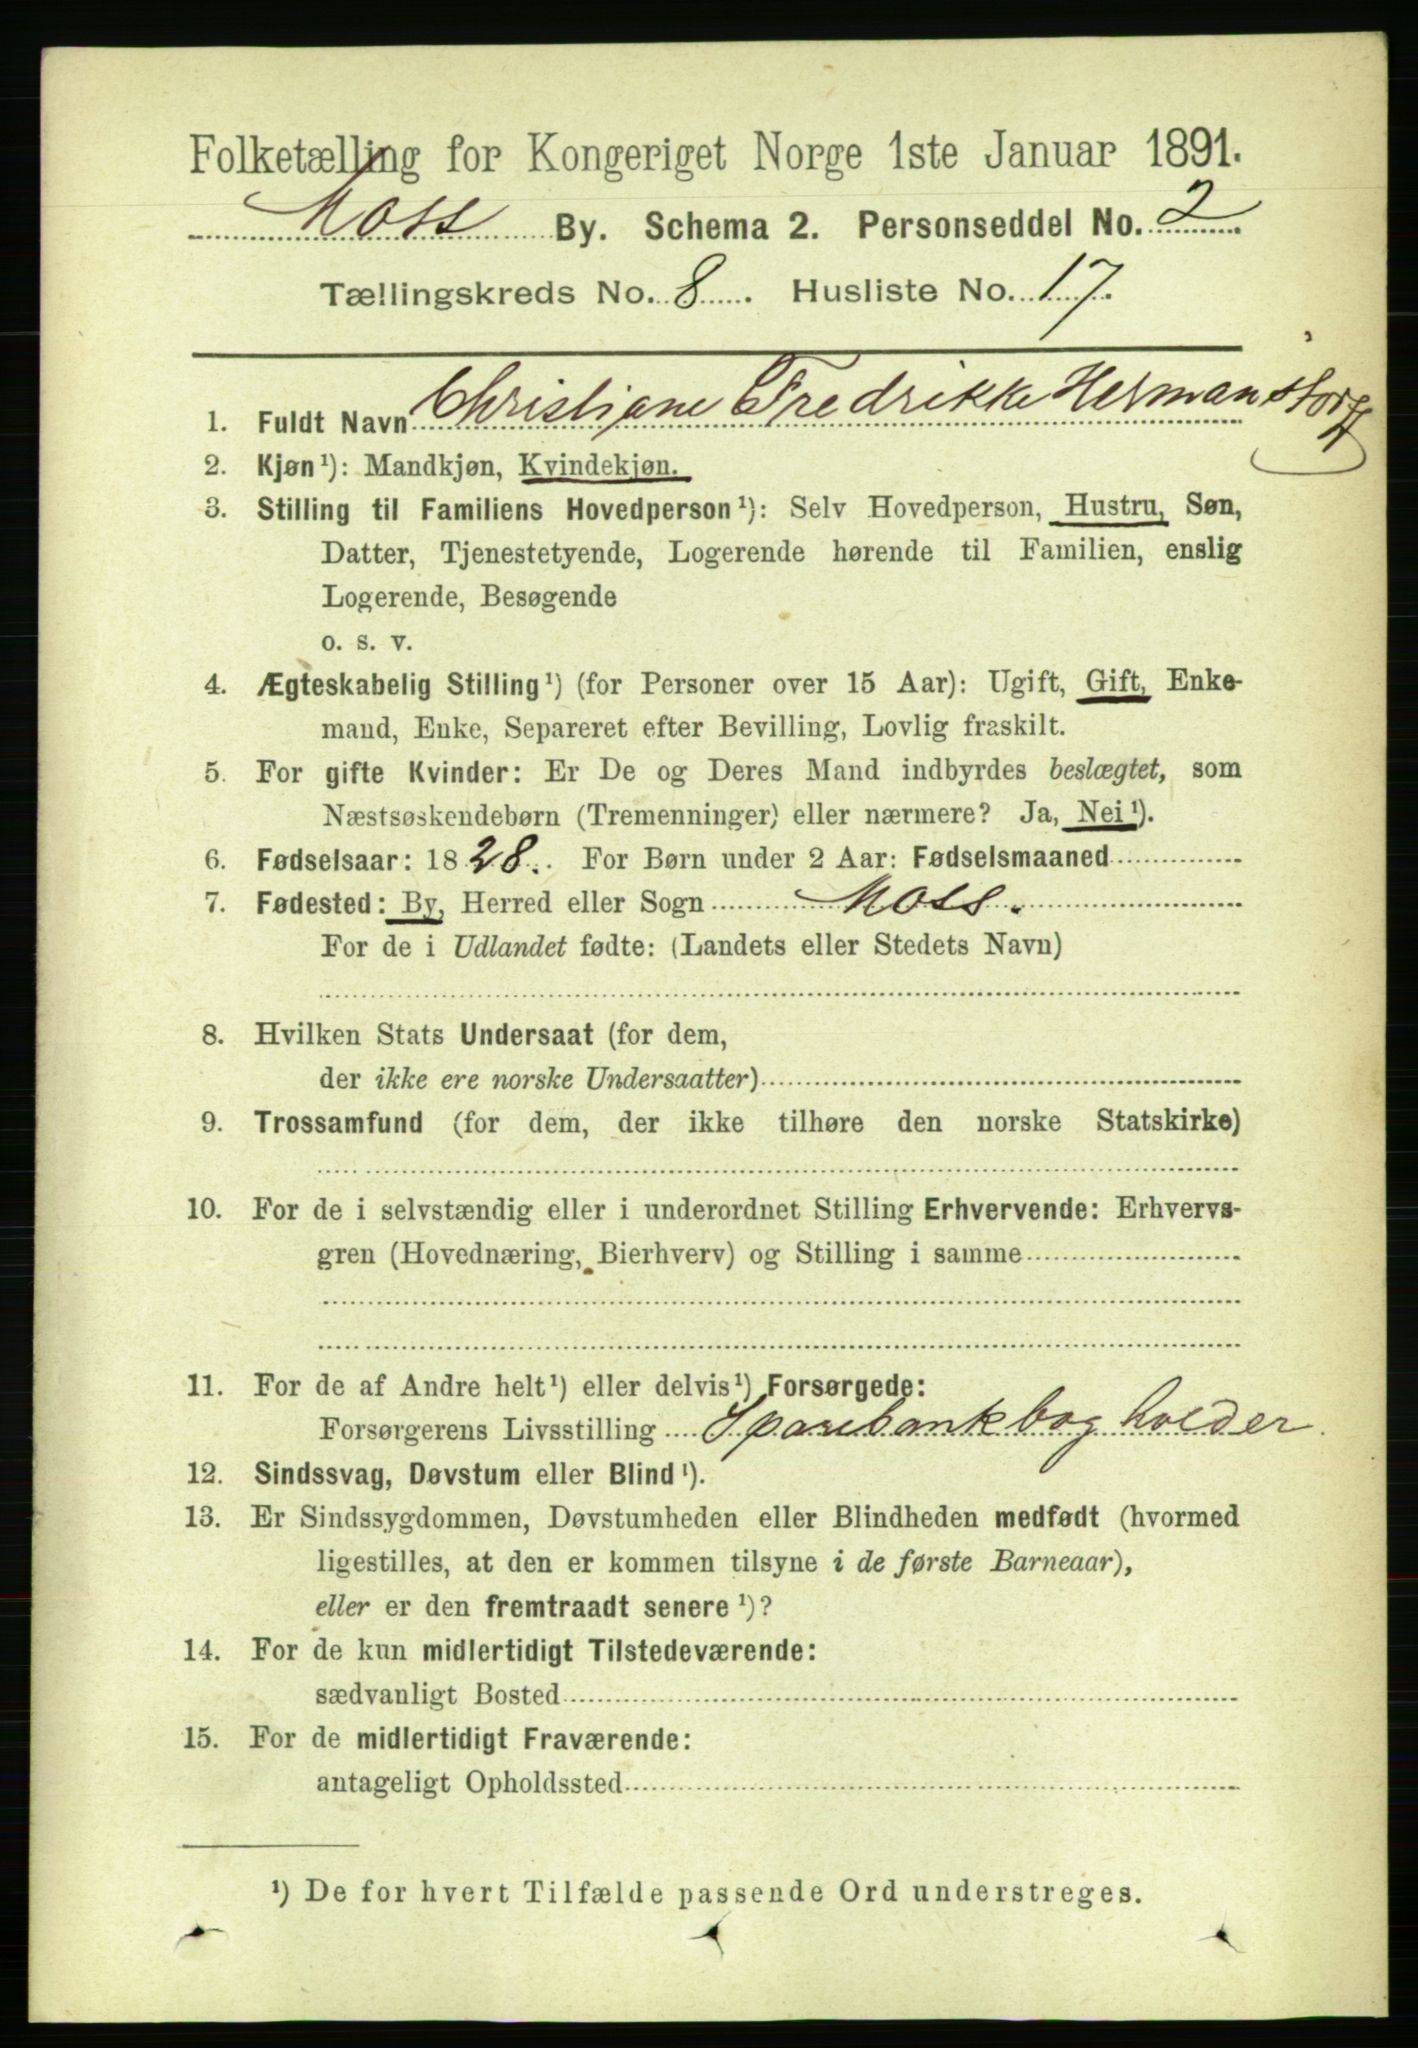 Folketælling for Kongeriget Norge 1ste Januar 1891.
Moss By. Schema 2. Personseddel No. 2
Tællingskreds No. 8. Husliste No. 17.
1. Fuldt Navn Christiane Fredrikke Hermanstorff
2. Kjøn¹): Mandkjøn, Kvindekjøn.
3. Stilling til Familiens Hovedperson¹): Selv Hovedperson, Hustru, Søn,
Datter, Tjenestetyende, Logerende hørende til Familien, enslig
Logerende, Besøgende
o. s. v.
4. Ægteskabelig Stilling¹) (for Personer over 15 Aar): Ugift, Gift, Enke-
mand, Enke, Separeret efter Bevilling, Lovlig fraskilt.
5. For gifte Kvinder: Er De og Deres Mand indbyrdes beslægtet, som
Næstsøskendebørn (Tremenninger) eller nærmere? Ja, Nei¹).
6. Fødselsaar: 1828. For Børn under 2 Aar: Fødselsmaaned
7. Fødested: By, Herred eller Sogn Moss.
For de i Udlandet fødte: (Landets eller Stedets Navn)
8. Hvilken Stats Undersaat (for dem,
der ikke ere norske Undersaatter)
9. Trossamfund (for dem, der ikke tilhøre den norske Statskirke)
10. For de i selvstændig eller i underordnet Stilling Erhvervende: Erhvervs-
gren (Hovednæring, Bierhverv) og Stilling i samme
11. For de af Andre helt¹) eller delvis¹) Forsørgede:
Forsørgerens Livsstilling Sparebankbogholder
12. Sindssvag, Døvstum eller Blind¹).
13. Er Sindssygdommen, Døvstumheden eller Blindheden medfødt (hvormed
ligestilles, at den er kommen tilsyne i de første Barneaar),
eller er den fremtraadt senere¹)?
14. For de kun midlertidigt Tilstedeværende:
sædvanligt Bosted
15. For de midlertidigt Fraværende:
antageligt Opholdssted
¹) De for hvert Tilfælde passende Ord understreges.